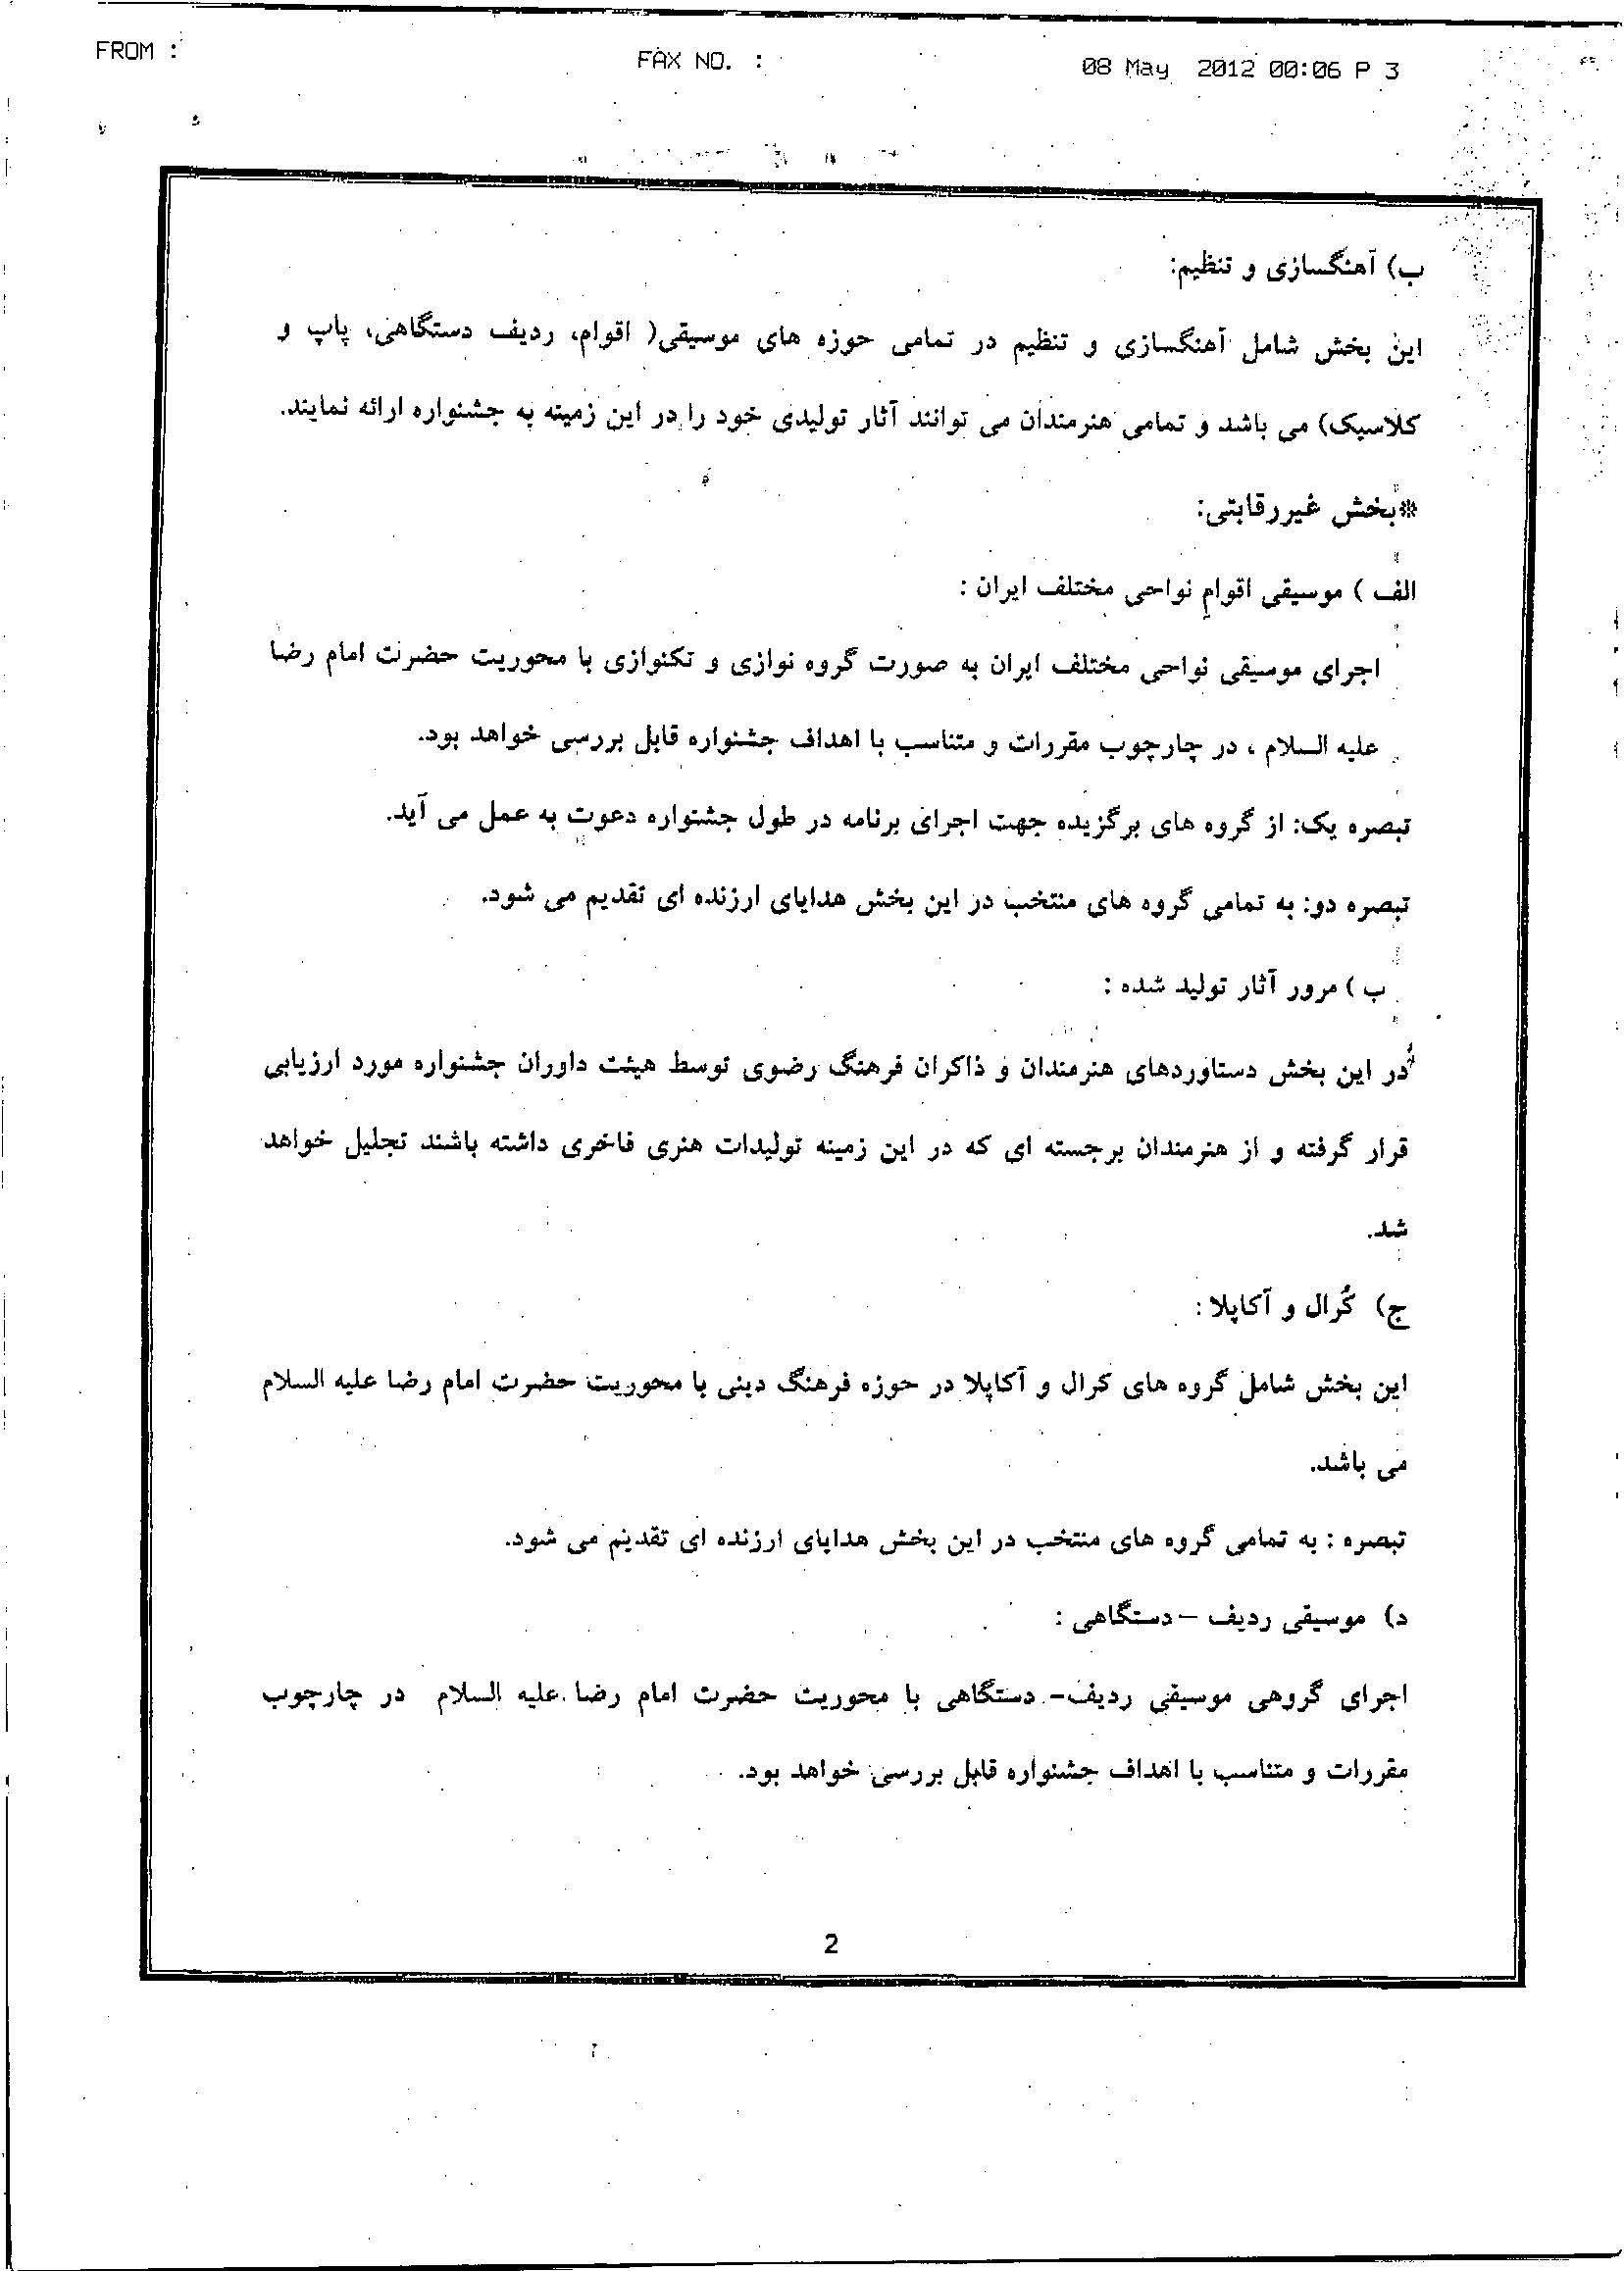 FROM :
FAX NO. :
08 May 2012 00:06 P 3
ب) آهنگسازی و تنظیم:
این بخش شامل آهنگسازی و تنظیم در تمامی حوزه های موسیقی( اقوام، ردیف دستگاهی، پاپ و
کلاسیک) می باشد و تمامی هنرمندان می توانند آثار تولیدی خود را در این زمینه به جشنواره ارائه نمایند.
*بخش غیررقابتی:
الف ) موسیقی اقوام نواحی مختلف ایران :
اجرای موسیقی نواحی مختلف ایران به صورت گروه نوازی و تکنوازی با محوریت حضرت امام رضا
علیه السلام ، در چارچوب مقررات و متناسب با اهداف جشنواره قابل بررسی خواهد بود.
تبصره یک: از گروه های برگزیده جهت اجرای برنامه در طول جشنواره دعوت به عمل می آید.
تبصره دو: به تمامی گروه های منتخب در این بخش هدایای ارزنده ای تقدیم می شود.
ب ) مرور آثار تولید شده :
در این بخش دستاوردهای هنرمندان و ذاکران فرهنگ رضوی توسط هیئت داوران جشنواره مورد ارزیابی
قرار گرفته و از هنرمندان برجسته ای که در این زمینه تولیدات هنری فاخری داشته باشند تجلیل خواهد
شد.
ج) کُرال و آکاپلا :
این بخش شامل گروه های کرال و آکاپلا در حوزه فرهنگ دینی با محوریت حضرت امام رضا علیه السلام
می باشد.
تبصره : به تمامی گروه های منتخب در این بخش هدایای ارزنده ای تقدیم می شود.
د) موسیقی ردیف – دستگاهی :
اجرای گروهی موسیقی ردیف- دستگاهی با محوریت حضرت امام رضا علیه السلام در چارچوب
مقررات و متناسب با اهداف جشنواره قابل بررسی خواهد بود.
2